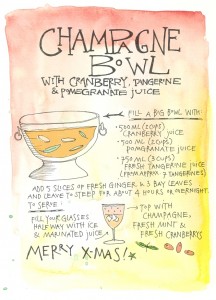 CHAMPAGNE
BOWL
WITH CRANBERRY, TANGERINE
& POMEGRANATE JUICE
FILL A BIG BOWL WITH:
• 500 ML (2 CUPS)
CRANBERRY JUICE
• 500 ML (2 CUPS)
POMEGRANATE JUICE
• 750 ML (3 CUPS)
FRESH TANGERINE JUICE
(FROM APPROX 7 TANGERINES)
ADD 5 SLICES OF FRESH GINGER & 3 BAY LEAVES
AND LEAVE TO STEEP FOR ABOUT 4 HOURS OR OVERNIGHT.
TO SERVE:
FILL YOUR GLASSES
HALF WAY WITH ICE
& MARINATED JUICE
TOP WITH
CHAMPAGNE,
FRESH MINT &
FRESH CRANBERRYS
MERRY X-MAS!*